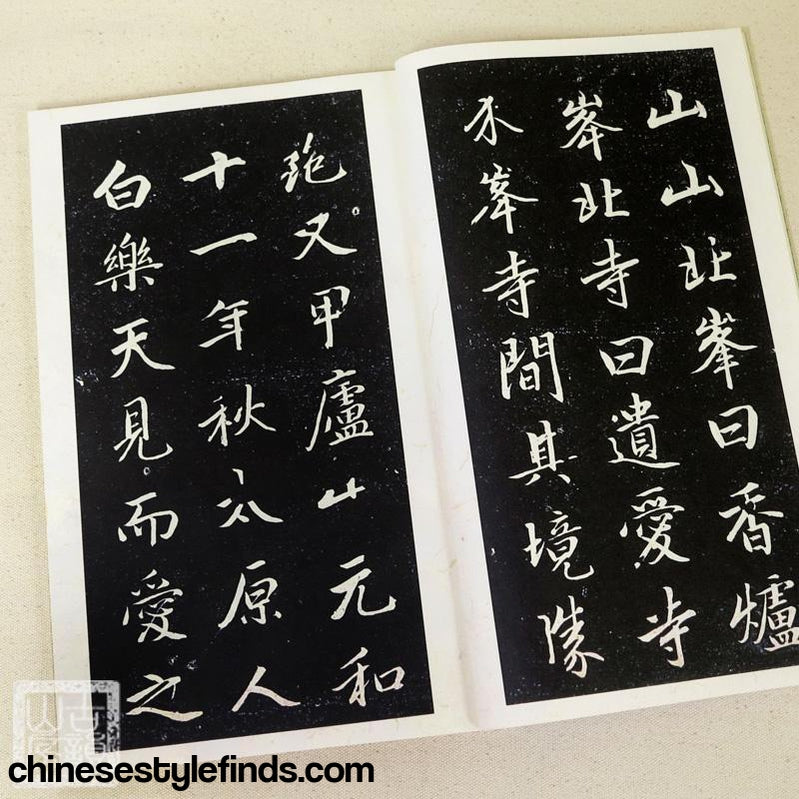 山山北峯曰香爐
峯北寺曰遺愛寺
介峯寺間其境勝
絕又甲廬山元和
十一年秋太原人
白樂天見而愛之
chinesestylefinds.com